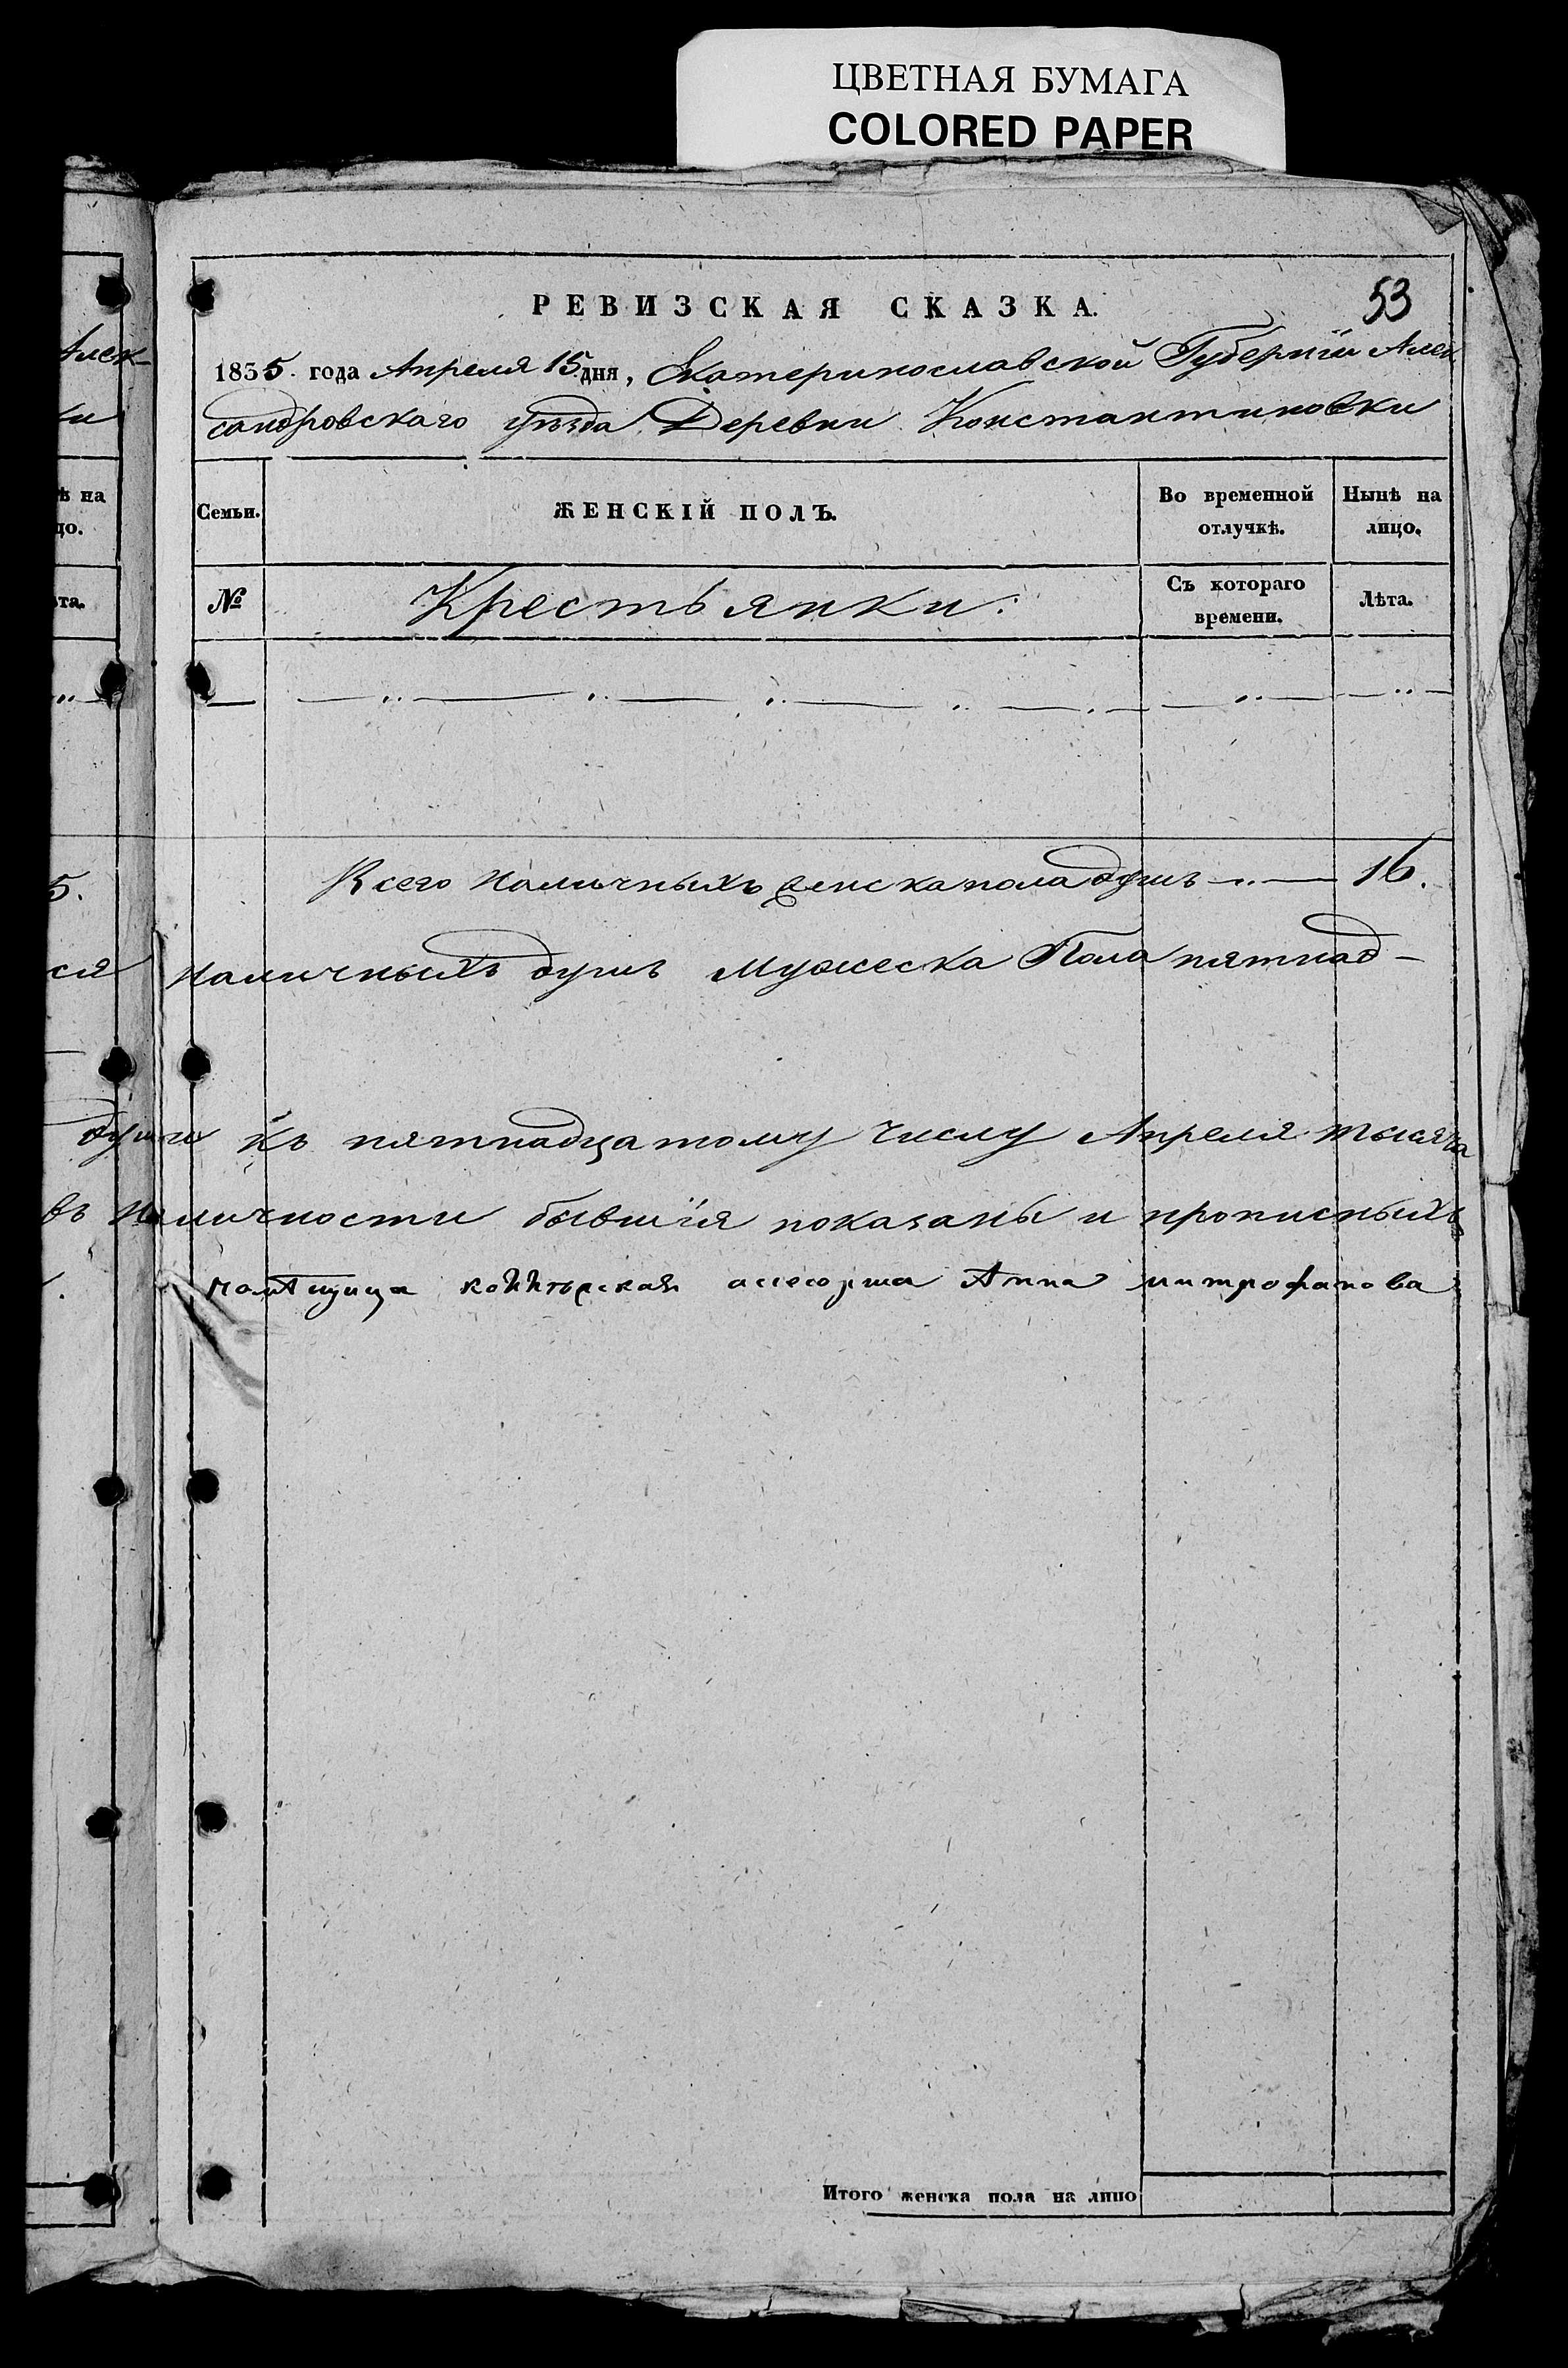 ЦВЕТНАЯ БУМАГА
COLORED PAPER
53
РЕВИЗСКАЯ СКАЗКА.
1835. года Апреля 15 дня, Екатеринославской Губернїи Алек
сандровскаго уѣзда Деревни Константиновки
Семьи.
ЖЕНСКІЙ ПОЛЪ.
Во временной отлучкѣ.
Нынѣ на лицо.
№
Крестьянки.
Съ котораго времени.
Лѣта.
Всего наличныхъ женска пола душъ 16.
наличныхъ душъ мужеска Пола пятнад-
души къ пятнадцатому числу Апреля тысяча
въ наличности бывшїя показаны и прописныхъ
ассесорша Анна митрофанова
Итого женска пола на лицо